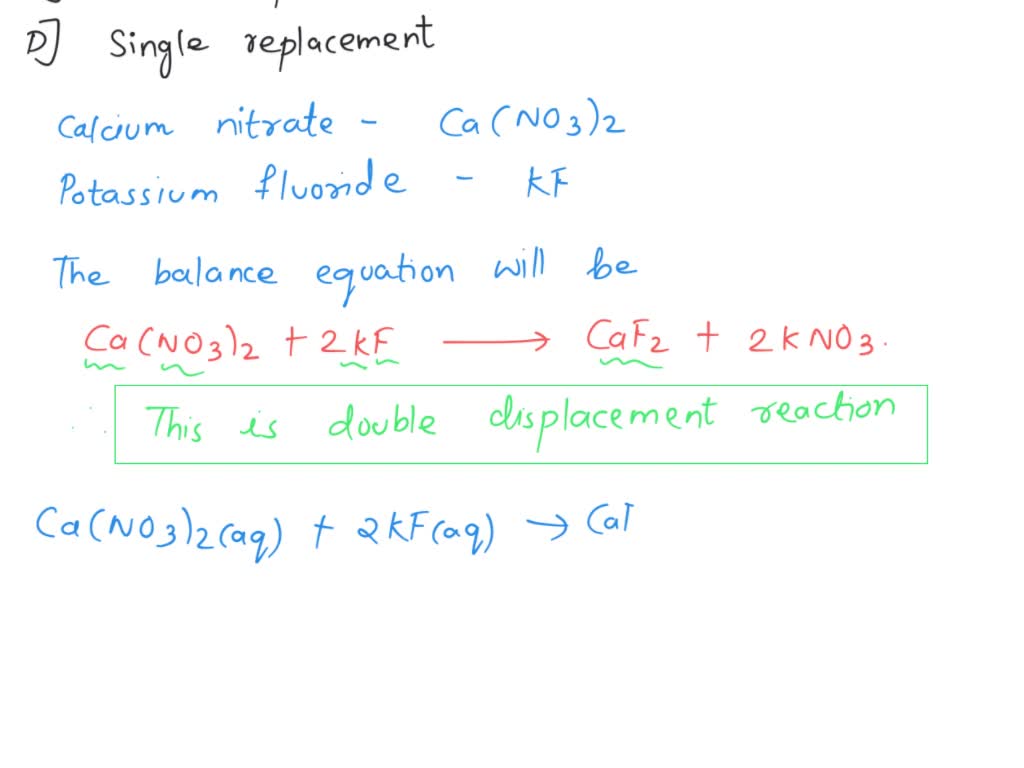 D] Single replacement
Calcium nitrate - Ca(NO3)2
Potassium fluoride - KF
The balance equation will be
Ca(NO3)2 + 2KF → CaF2 + 2KNO3.
This is double displacement reaction
Ca(NO3)2(aq) + 2KF(aq) →